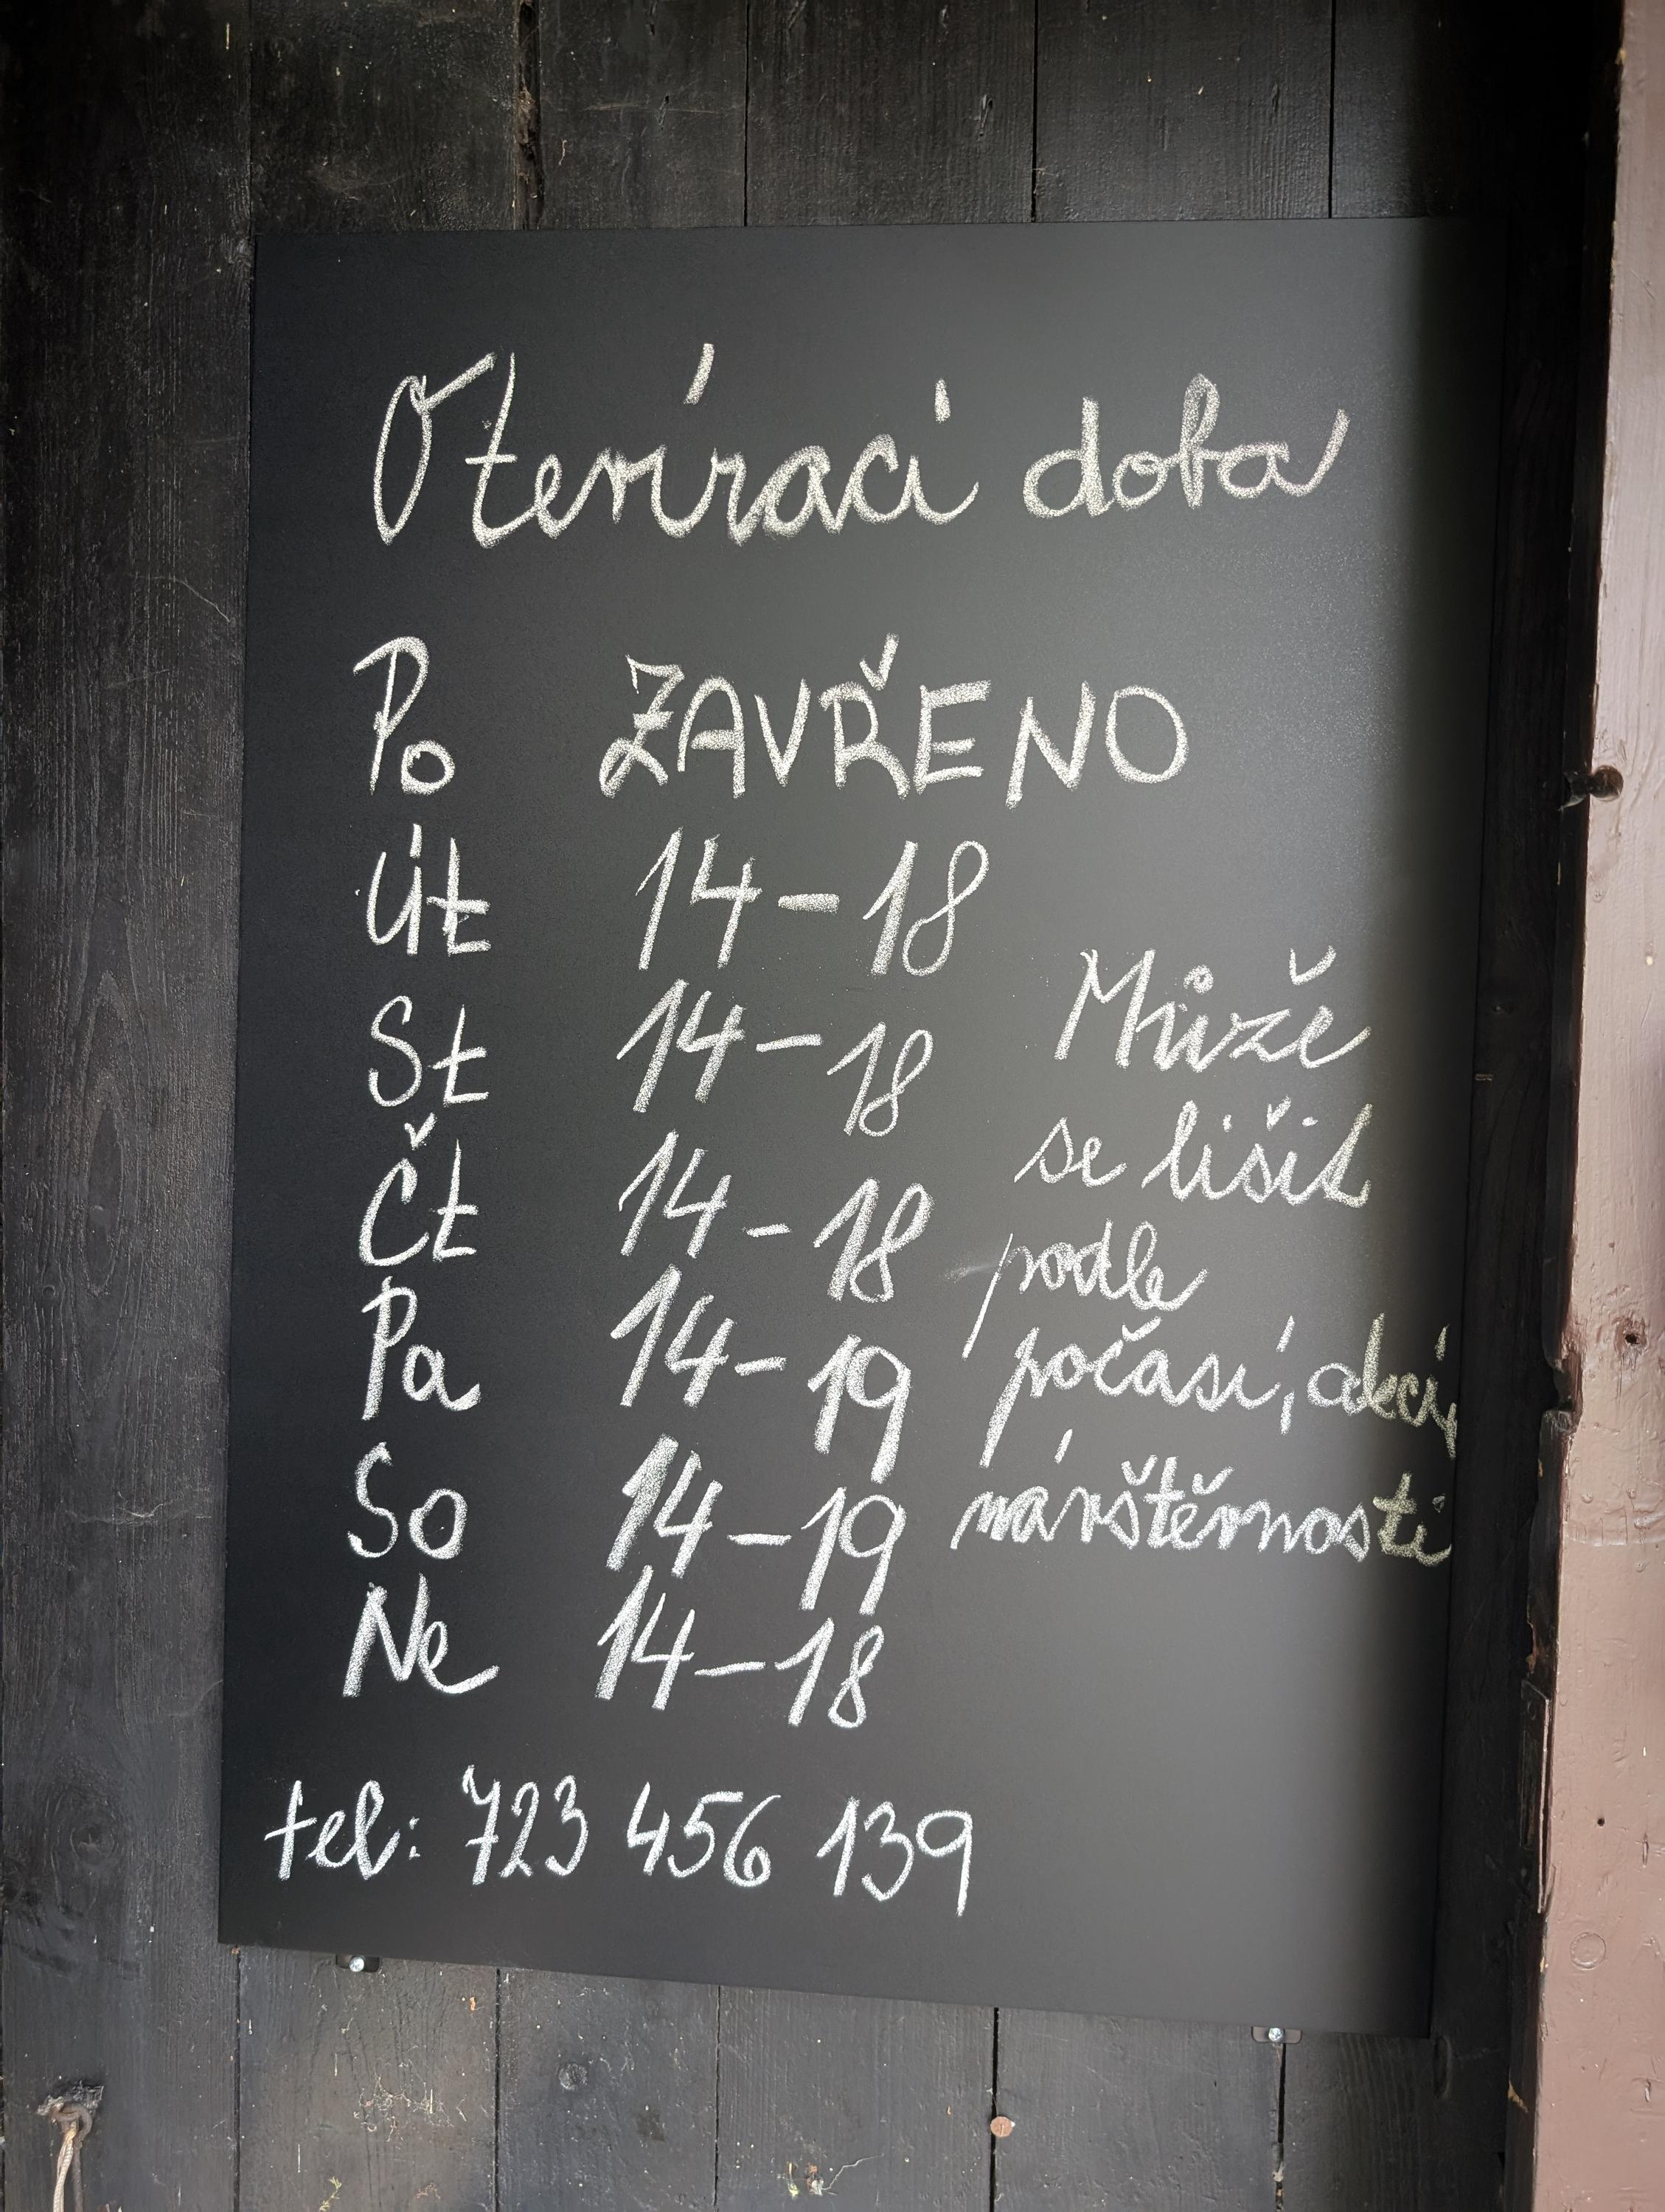 Otevírací doba
Po ZAVŘENO
Út 14-18
St 14-18
Čt 14-18
Pa 14-19
So 14-19
Ne 14-18
Může
se lišit
podle
počasí, akcí,
návštěvnosti
tel: 723 456 139